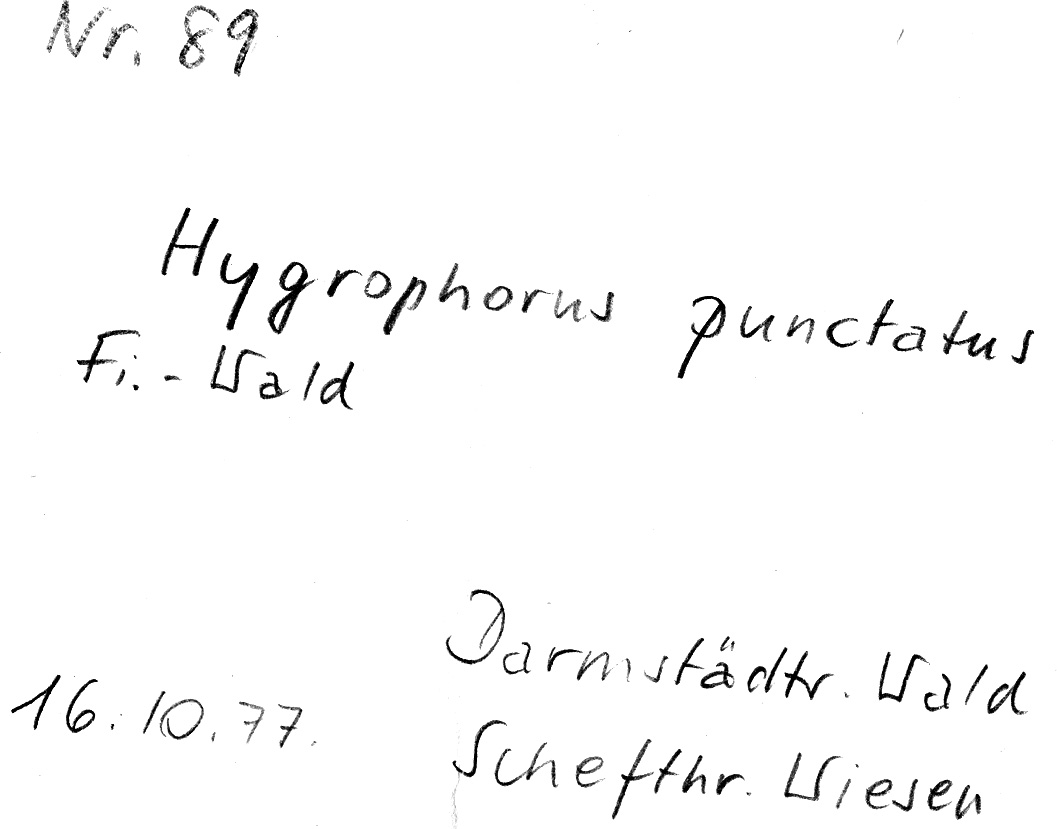 Nr. 89
Hygrophorus punctatus
Fi.-Wald
Darmstädtr. Wald
16.10.77.
Schefthr. Wiesen